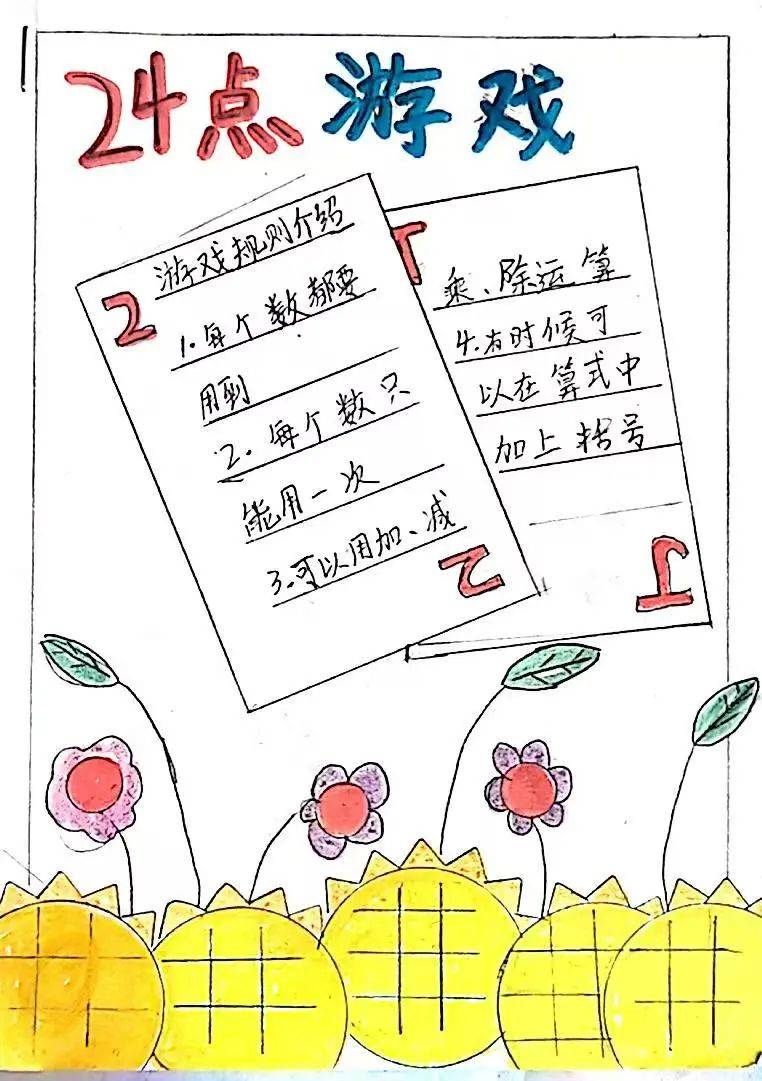 24点 游戏
2
游戏规则介绍
1.每个数都要
用到
2.每个数只
能用一次
3.可以用加、减
2
1
乘、除运算
4.有时候可
以在算式中
加上括号
1